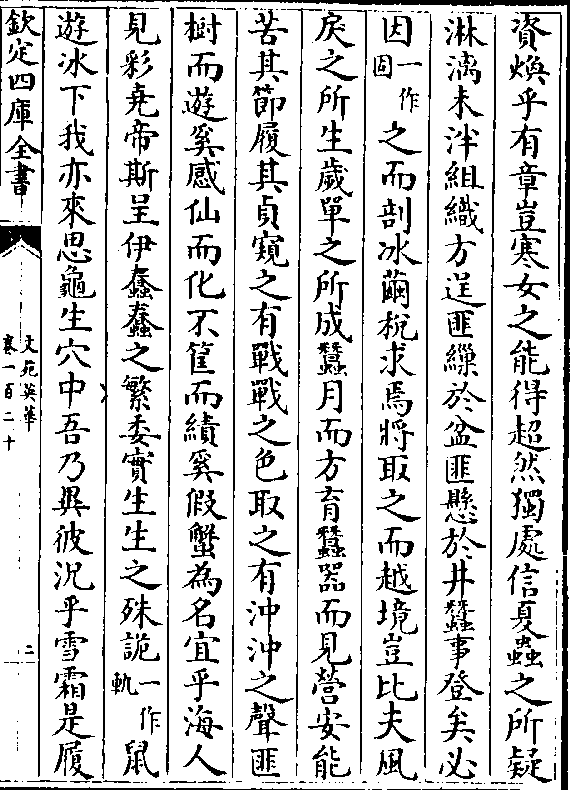 資煥乎有章豈寒女之能得超然獨處信夏蟲之所疑
淋漓未泮組織方逞匪繅於盆匪懸於井蠶事登矣必
因一作固之而剖冰繭梲求焉將取之而越境豈比夫風
戾之所生歲單之所成蠶月而方育蠶器而見營安能
苦其節履其貞窺之有戰戰之色取之有沖沖之聲匪
樹而遊奚感仙而化不筐而績奚假蟹為名宜乎海人
見彩堯帝斯呈伊蠢蠢之繁委實生生之殊詭一作軌鼠
遊冰下我亦來思龜生穴中吾乃異彼況乎雪霜是履
欽定四庫全書
文苑英華
卷一百二十
二